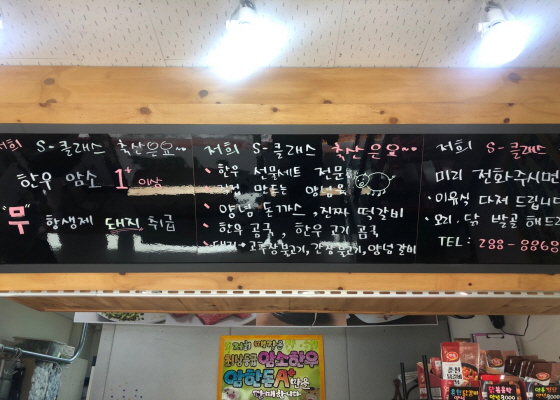 저희 S-클래스 축산은요~
한우 암소 1+ 이상
"무" 항생제 돼지 취급
저희 S-클래스 축산은요~
· 한우 선물세트 전문
· 직접 만드는 양념육
· 양념 돈까스, 진짜 떡갈비
· 한우 곰국, 한우 고기 곰국
· 돼지 고추장불고기, 간장불고기, 양념갈비
저희 S-클래스
미리 전화주시면
· 이유식 다져 드립니
· 오리. 닭 발골 해드
TEL: 288-8868
저희 매장은
최상등급 암소한우
암한돈 A+ 만을
판매합니다